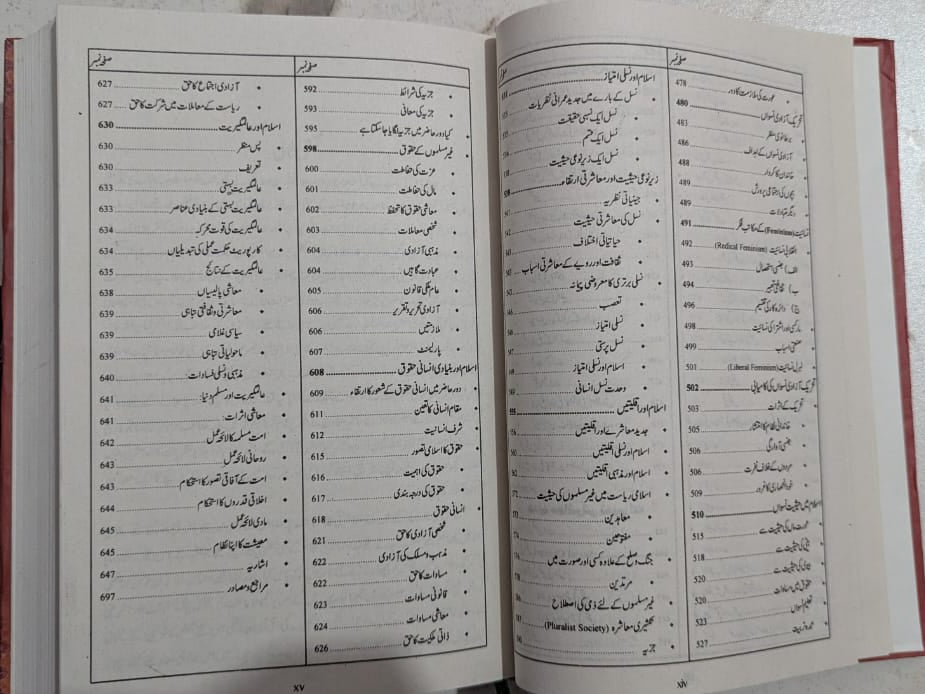 صفحہ نمبر
عورت کی ملازمت کا دور 478
تحریک آزادی نسواں 480
برطانوی منظر 483
آزادی نسواں کے اہداف 486
خاندان کا کردار 488
بچوں کی اجتماعی پرورش 489
دیگر متبادلات 489
نسائیت (Feminism) کے مکاتب فکر 491
انقلابی نسائیت (Redical Feminism) 492
الف) جنسی استحصال 493
ب) ثقافتی تعبیر 494
ج) دائرہ کار کی تقسیم 496
مارکسی اور اشتراکی نسائیت 498
صنعتی اسباب 499
لبرل نسائیت (Liberal Feminism) 501
تحریک آزادی نسواں کی کامیابی 502
تحریک کے اثرات 503
خاندانی نظام کا انتشار 505
جنسی آوارگی 506
مردوں کے خلاف نفرت 506
خود انحصاری کا غرور 509
اسلام میں حیثیت نسواں 510
عورت ماں کی حیثیت سے 515
بیٹی کی حیثیت سے 518
بیوی کی حیثیت سے 520
حقوق میں مساوات 520
تعلیم نسواں 523
527
صفحہ نمبر
اسلام اور نسلی امتیاز
نسل کے بارے میں جدید عمرانی نظریات
نسل ایک نسبی حقیقت
نسل ایک قسم
نسل ایک زیر نوعی حیثیت
زیر نوعی حیثیت اور معاشرتی ارتقاء
جینیاتی نظریہ
نسل کی معاشرتی حیثیت
حیاتیاتی اختلاف
ثقافت اور رویے کے معاشرتی اسباب
نسل برتری کا معروضی پیمانہ
تعصب
نسلی امتیاز
نسل پرستی
اسلام اور نسلی امتیاز
وحدت نسل انسانی
اسلام اور اقلیتیں
جدید معاشرے اور اقلیتیں
اسلام اور نسلی اقلیتیں
اسلام اور مذہبی اقلیتیں
اسلامی ریاست میں غیر مسلموں کی حیثیت
معاہدین
مفتوحین
جنگ و صلح کے علاوہ کسی اور صورت میں
مرتدین
غیر مسلموں کے لئے ذمی کی اصطلاح
تکثیری معاشرہ (Pluralist Society)
جزیہ
xiv
صفحہ نمبر
جزیہ کی شرائط 592
جزیہ کی معافی 593
کیا دور حاضر میں جزیہ لگایا جا سکتا ہے 595
غیر مسلموں کے حقوق 598
عزت کی حفاظت 600
مال کی حفاظت 601
معاشی حقوق کا تحفظ 602
شخصی معاملات 603
مذہبی آزادی 604
عبادت گاہیں 604
عام ملکی قانون 605
آزادی تحریر و تقریر 606
ملازمتیں 606
پارلیمنٹ 607
اسلام اور بنیادی انسانی حقوق 608
دور حاضر میں انسانی حقوق کے شعور کا ارتقاء 609
مقام انسانی کا تعین 611
شرف انسانیت 612
حقوق کا اسلامی تصور 615
حقوق کی اہمیت 616
حقوق کی درجہ بندی 617
انسانی حقوق 618
شخصی آزادی کا حق 621
مذہب و مسلک کی آزادی 622
مساوات کا حق 622
قانونی مساوات 623
معاشی مساوات 624
ذاتی ملکیت کا حق 626
صفحہ نمبر
آزادی اجتماع کا حق 627
ریاست کے معاملات میں شرکت کا حق 627
اسلام اور عالمگیریت 630
پس منظر 630
تعریف 630
عالمگیریت پسندی 633
عالمگیریت پسندی کے بنیادی عناصر 633
عالمگیریت کی قوت محرکہ 634
کارپوریٹ حکمت عملی کی تبدیلیاں 634
عالمگیریت کے نتائج 635
معاشی پالیسیاں 638
معاشرتی و ثقافتی تباہی 639
سیاسی غلامی 639
ماحولیاتی تباہی 639
مذہبی و نسلی فسادات: 640
عالمگیریت اور مسلم دنیا: 641
معاشی اثرات: 641
امت مسلمہ کا لائحہ عمل 642
روحانی لائحہ عمل 643
امت کے آفاقی تصور کا استحکام 643
اخلاقی قدروں کا استحکام 644
مادی لائحہ عمل 645
معیشت کا اپنا نظام 645
اشاریہ 647
مراجع و مصادر 697
xv